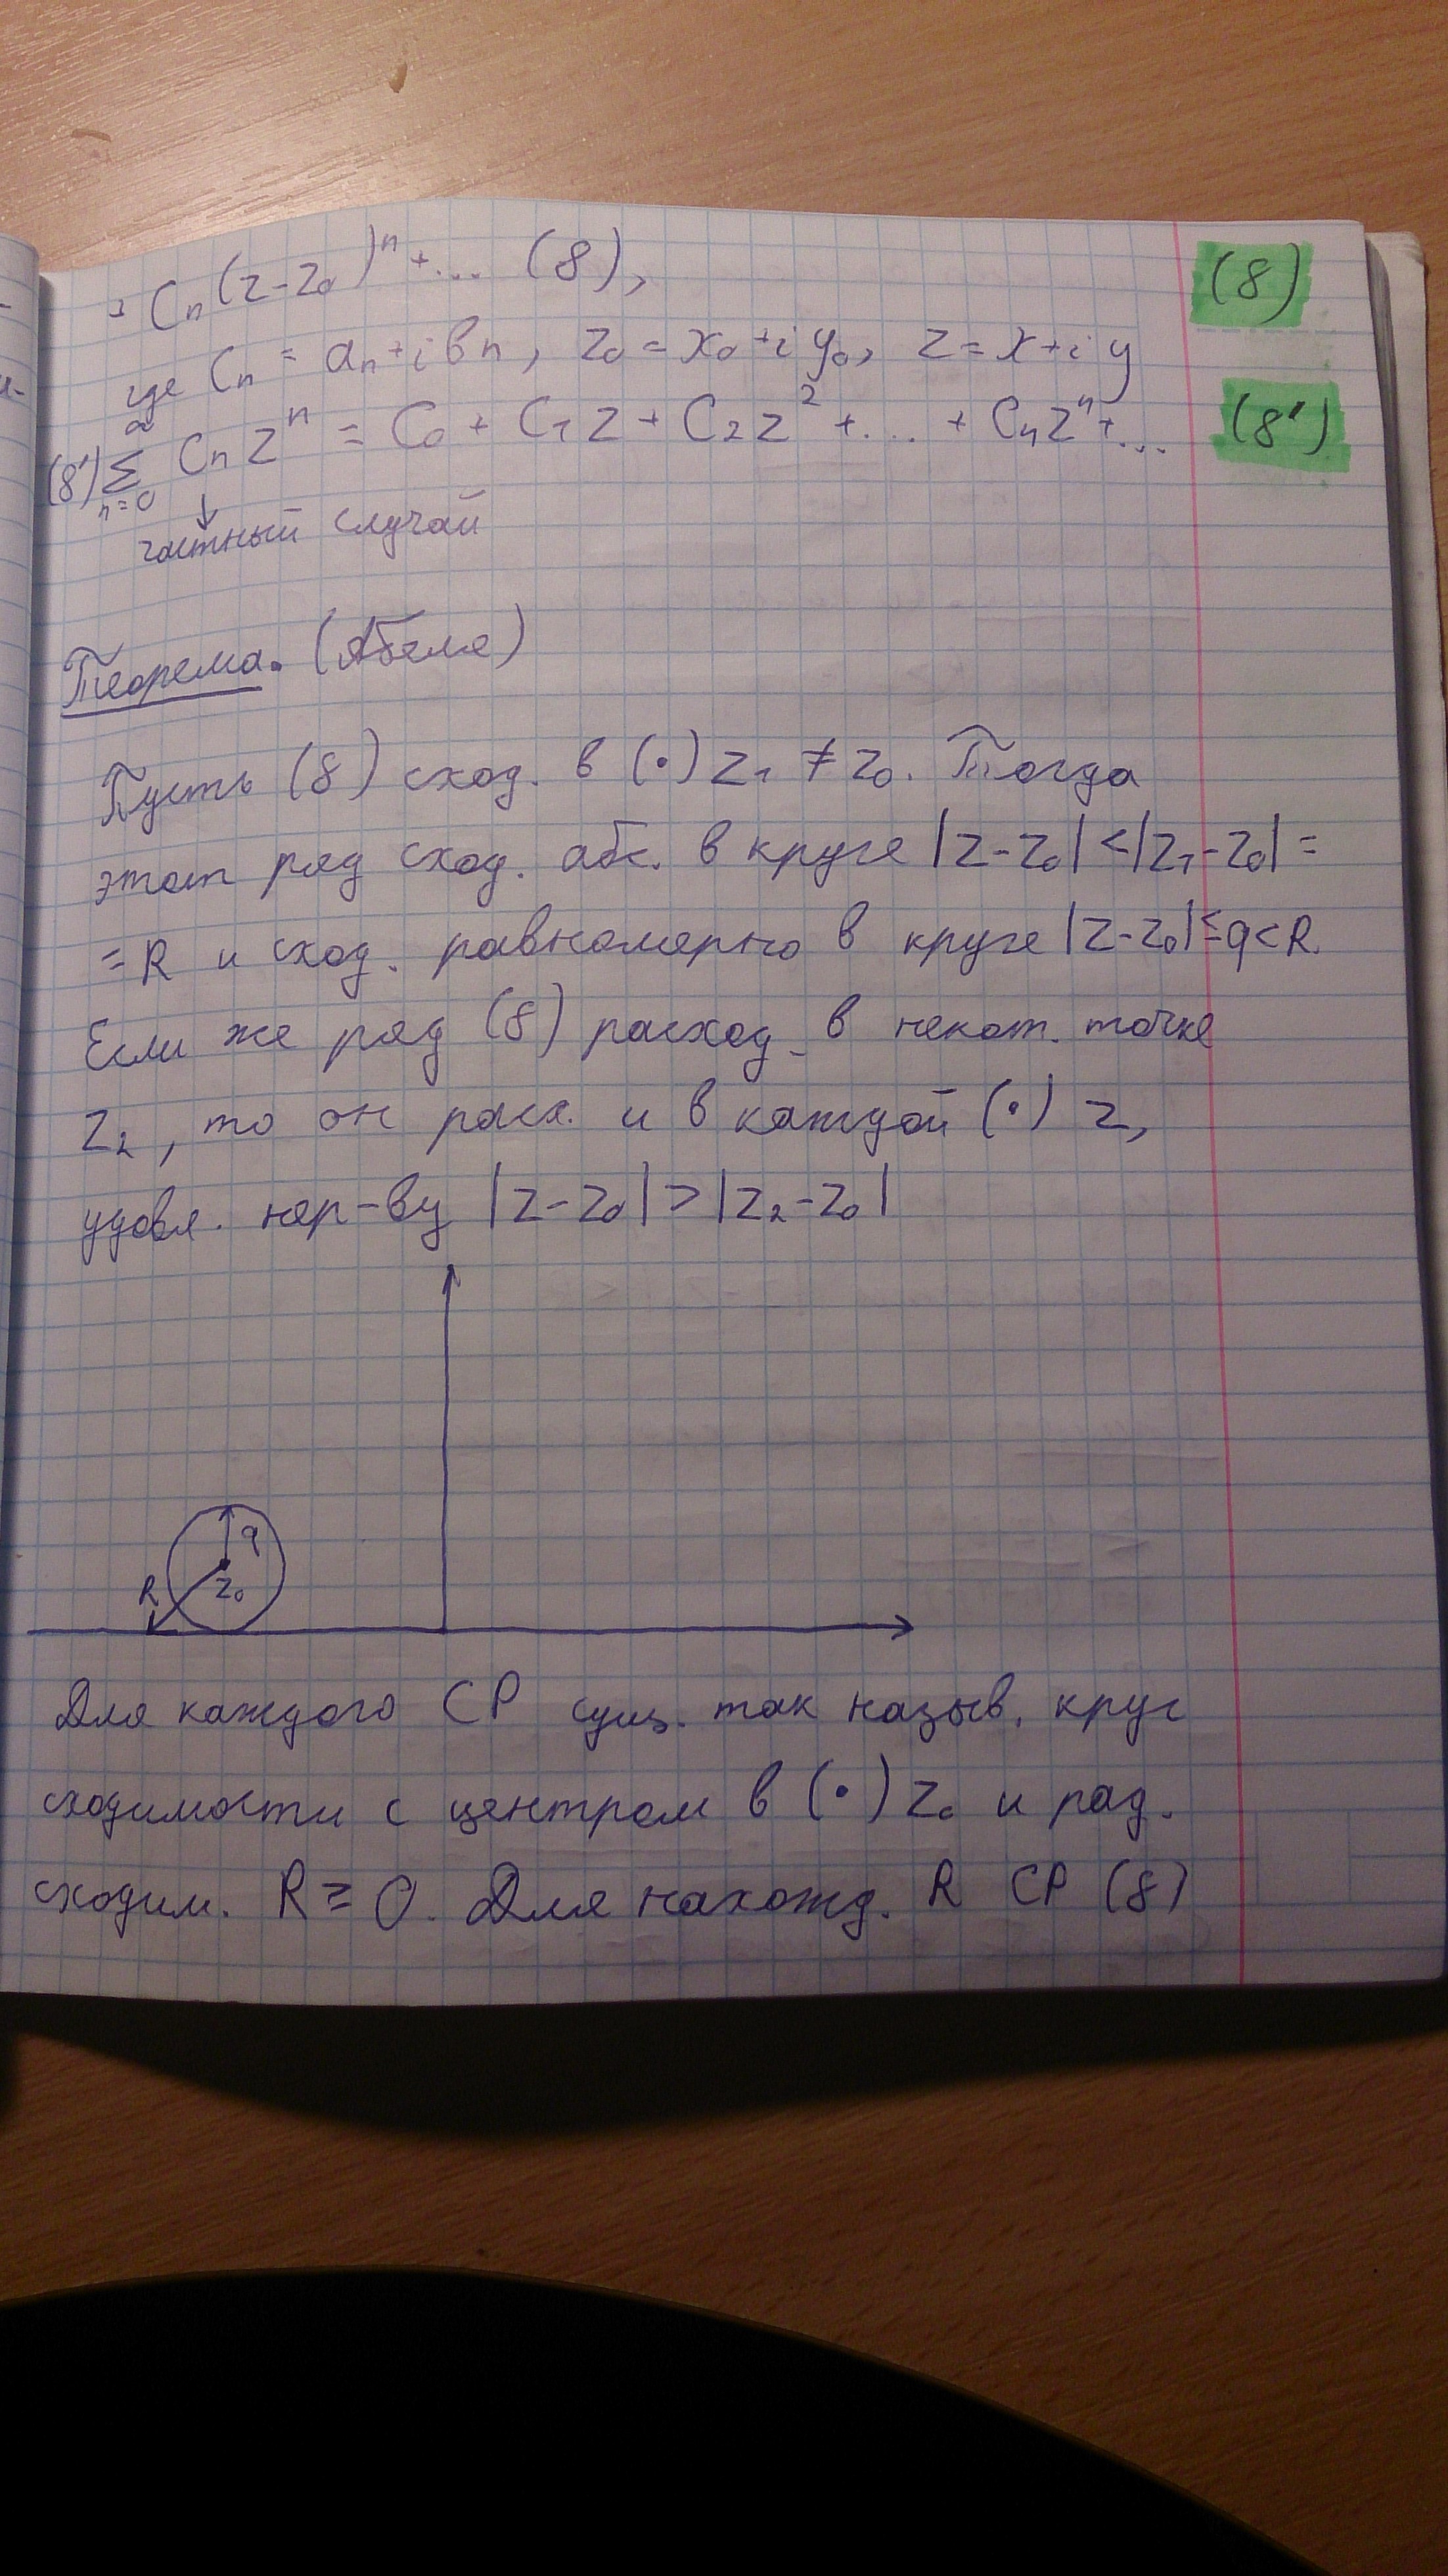 Cₙ(z-z₀)ⁿ+... (8), (8)
где Cₙ = aₙ+ibₙ, z₀=x₀+iy₀, z=x+iy
(8') ∞ Σ n=0 Cₙzⁿ = C₀ + C₁z + C₂z² +... + Cₙzⁿ+... (8')
↓
частный случай
Теорема. (Абеля)
Пусть (8) сход. в (·) z₁ ≠ z₀. Тогда
этот ряд сход. абс. в круге |z-z₀|<|z₁-z₀|=
=R и сход. равномерно в круге |z-z₀|≤q<R.
Если же ряд (8) расход. в некот. точке
z₂, то он расх. и в каждой (·) z,
удовл. нер-ву |z-z₀|>|z₂-z₀|
q
R
z₀
Для каждого СР сущ. так назыв. круг
сходимости с центром в (·) z₀ и рад.
сходим. R ≥ 0. Для нахожд. R СР (8)